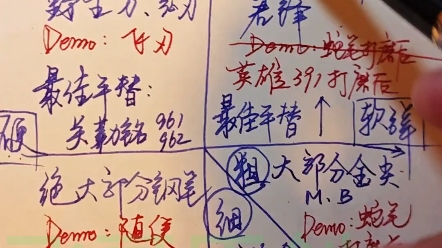 Demo:飞刃
最佳平替:
关勒铭961
962
硬
绝大部分钢笔
Demo:随便
Demo:蛇尾打磨后
英雄391打磨后
最佳平替
软弹
粗
细
大部分金尖
M.B
Demo:蛇尾